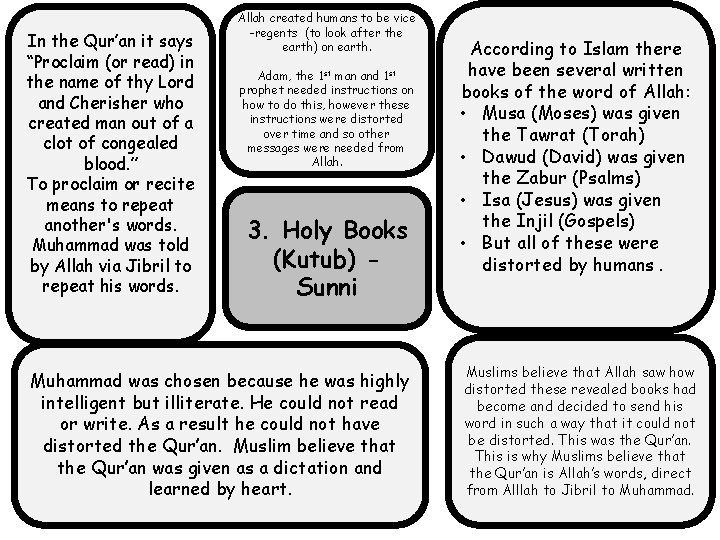 In the Qur’an it says
“Proclaim (or read) in
the name of thy Lord
and Cherisher who
created man out of a
clot of congealed
blood.”
To proclaim or recite
means to repeat
another's words.
Muhammad was told
by Allah via Jibril to
repeat his words.
Allah created humans to be vice
-regents (to look after the
earth) on earth.
Adam, the 1st man and 1st
prophet needed instructions on
how to do this, however these
instructions were distorted
over time and so other
messages were needed from
Allah.
3. Holy Books
(Kutub) -
Sunni
According to Islam there
have been several written
books of the word of Allah:
• Musa (Moses) was given
the Tawrat (Torah)
• Dawud (David) was given
the Zabur (Psalms)
• Isa (Jesus) was given
the Injil (Gospels)
• But all of these were
distorted by humans .
Muhammad was chosen because he was highly
intelligent but illiterate. He could not read
or write. As a result he could not have
distorted the Qur’an. Muslim believe that
the Qur’an was given as a dictation and
learned by heart.
Muslims believe that Allah saw how
distorted these revealed books had
become and decided to send his
word in such a way that it could not
be distorted. This was the Qur’an.
This is why Muslims believe that
the Qur’an is Allah’s words, direct
from Alllah to Jibril to Muhammad.